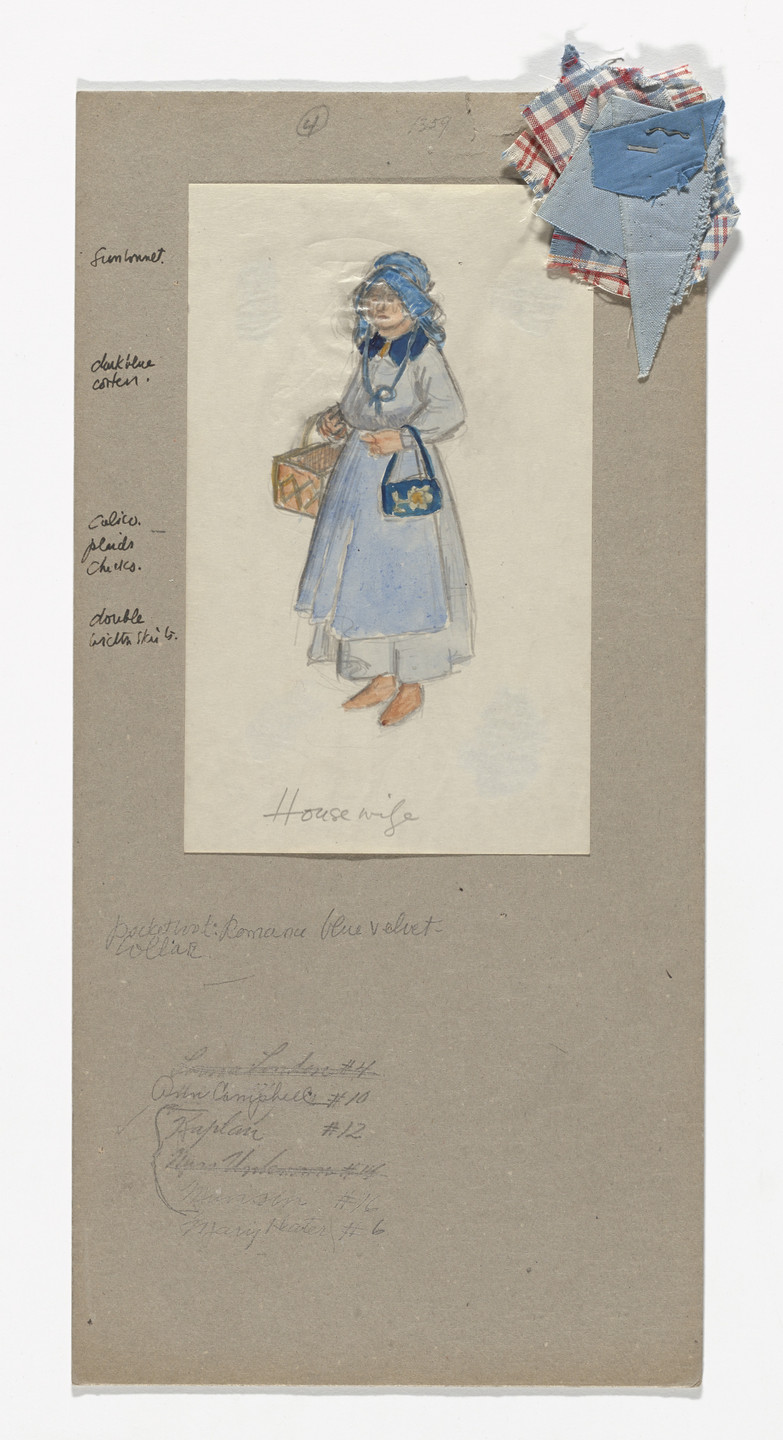 4
1359
Sunbonnet.
dark blue
cotten.
Calico.
plaids
checks.
double
width skirts.
Housewife
pocketbook: Romance blue velvet
Collar.
#4
Ann Campbell #10
Kaplan #12
#14
#16
Mary Heater #6